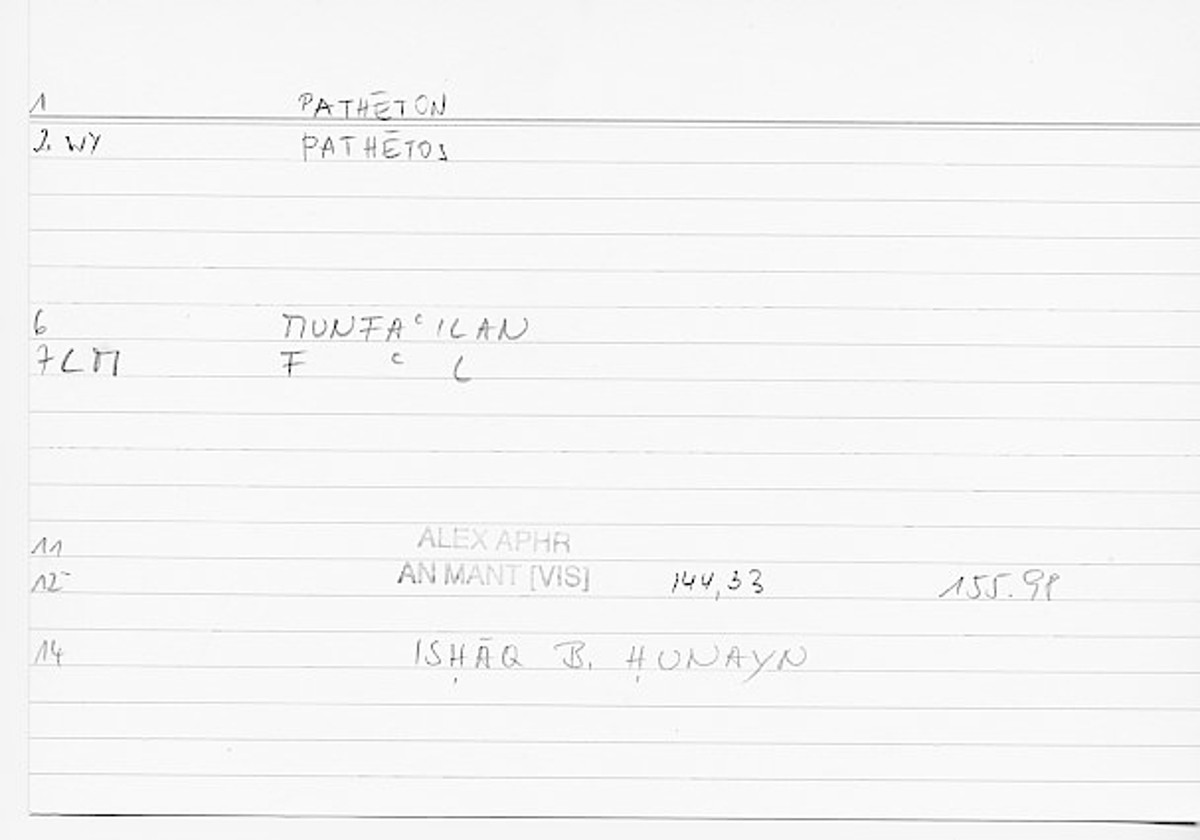 1 PATHĒTON
2. WY PATHĒTOS
6 MUNFAʿILAN
7 LM F ʿ L
11 ALEX APHR
12 AN MANT [VIS] 144,33 155.98
14 ISḤĀQ B. ḤUNAYN